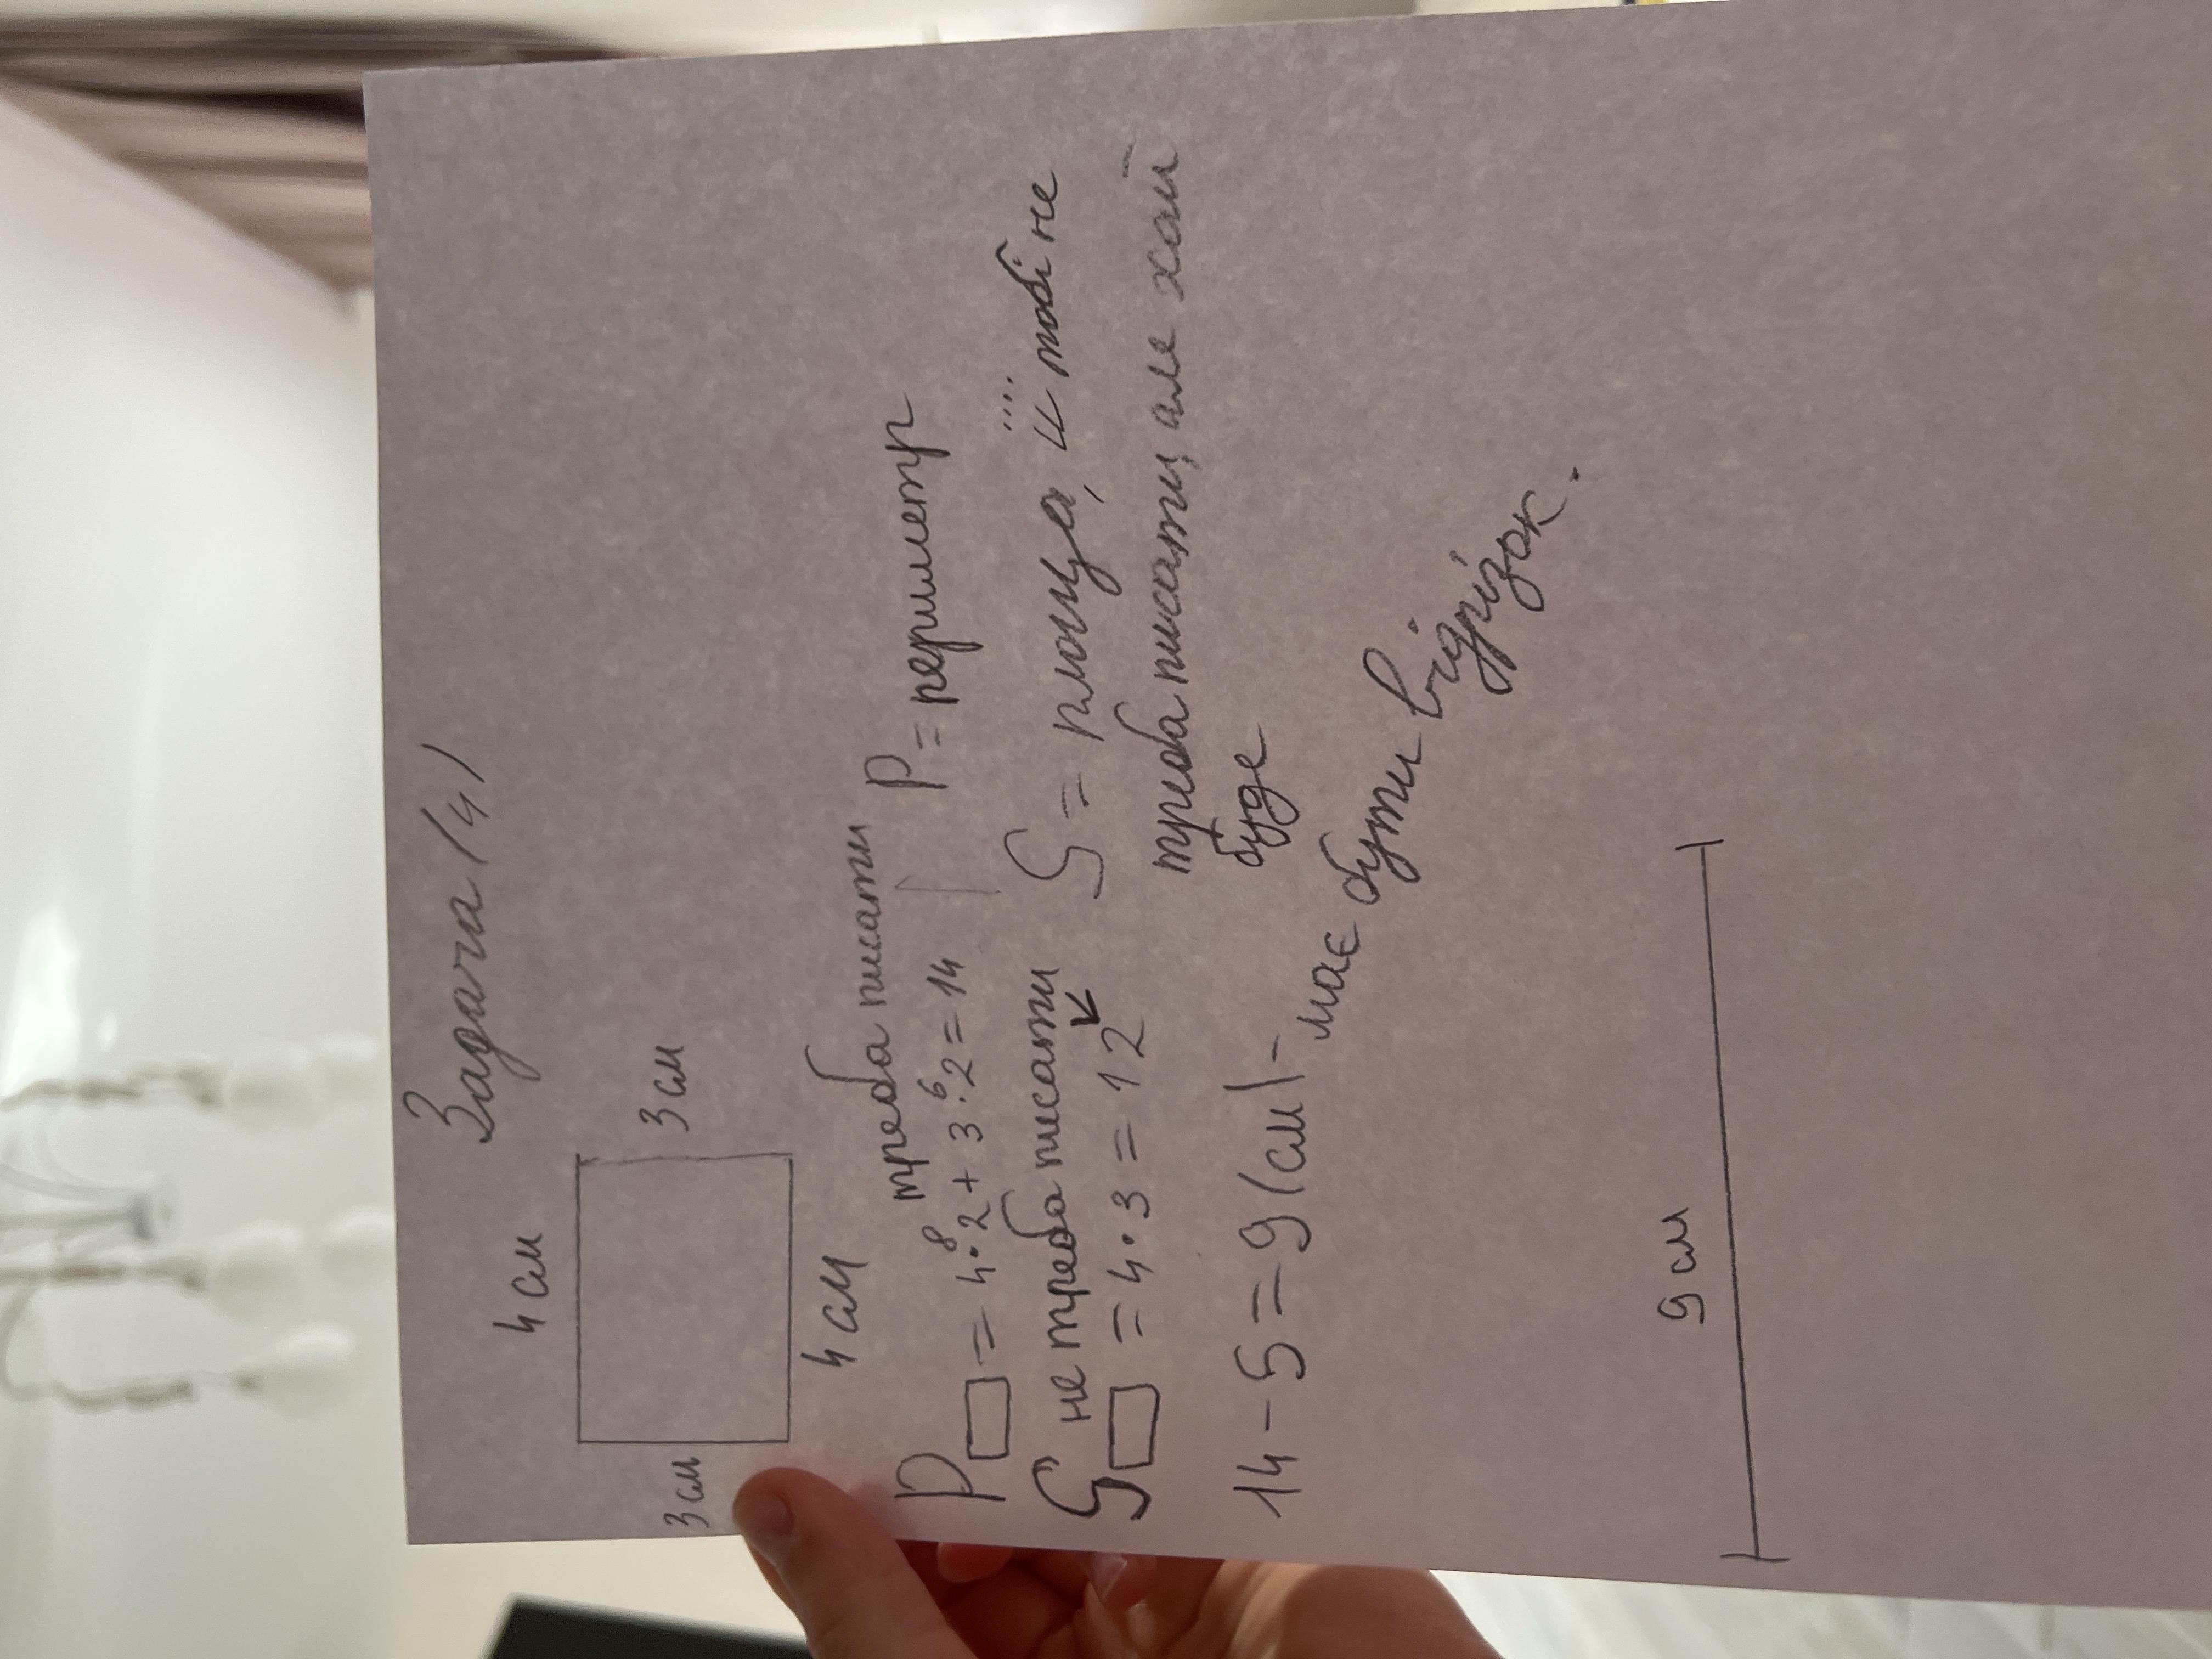 Задача (4)
4 см
3 см
3 см
4 см
треба писати
P▭ = 4·2 + 3·2 = 14
8 6
P = периметр
не треба писати
S▭ = 4·3 = 12
S = площа, її тобі не
треба писати, але хай
буде
14 - 5 = 9 (см) - має бути відрізок.
9 см